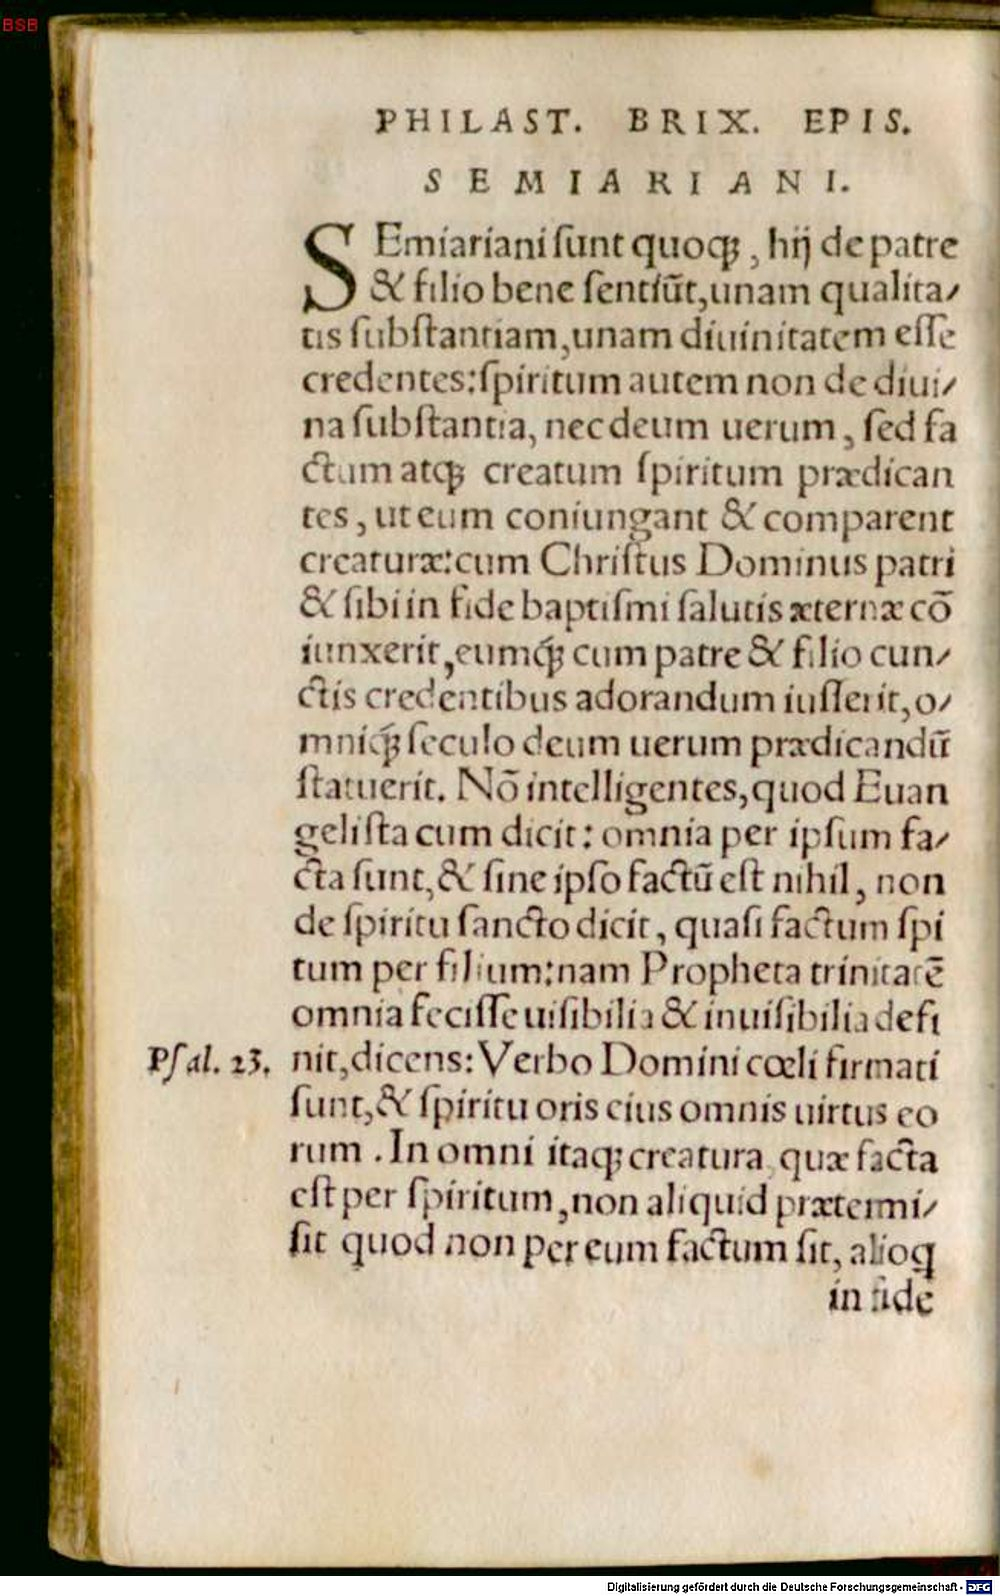 BSB
PHILAST. BRIX. EPIS.
SEMIARIANI.
SEmiariani sunt quoqꝫ, hij de patre
& filio bene sentiũt, unam qualita/
tis substantiam, unam diuinitatem esse
credentes: spiritum autem non de diui/
na substantia, nec deum uerum, sed fa
ctum atqꝫ creatum spiritum prædican
tes, ut eum coniungant & comparent
creaturæ: cum Christus Dominus patri
& sibi in fide baptismi salutis æternæ cõ
iunxerit, eumq́ꝫ cum patre & filio cun/
ctis credentibus adorandum iusserit, o/
mniq́ꝫ seculo deum uerum prædicandũ
statuerit. Nõ intelligentes, quod Euan
gelista cum dicit: omnia per ipsum fa/
cta sunt, & sine ipso factũ est nihil, non
de spiritu sancto dicit, quasi factum spi
tum per filium: nam Propheta trinitatẽ
omnia fecisse uisibilia & inuisibilia defi
Psal. 23. nit, dicens: Verbo Domini cœli firmati
sunt, & spiritu oris eius omnis uirtus eo
rum. In omni itaqꝫ creatura, quæ facta
est per spiritum, non aliquid prætermi/
sit quod non per eum factum sit, alioq
in fide
Digitalisierung gefördert durch die Deutsche Forschungsgemeinschaft - DFG